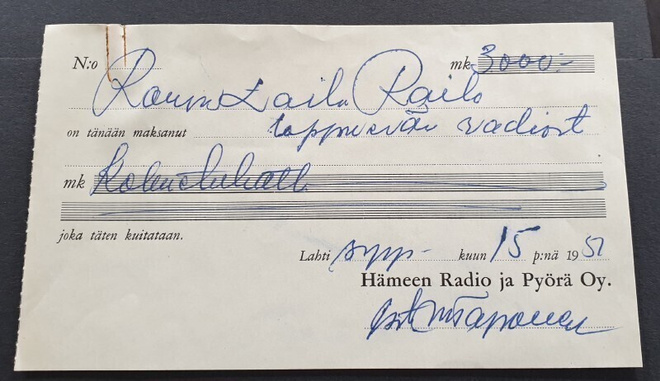 N:o mk 3000:-
Rouva Laila Railo
on tänään maksanut loppuerän radiost
mk Kolmetuhatta
joka täten kuitataan.
Lahti syys- kuun 15 p:nä 1951
Hämeen Radio ja Pyörä Oy.